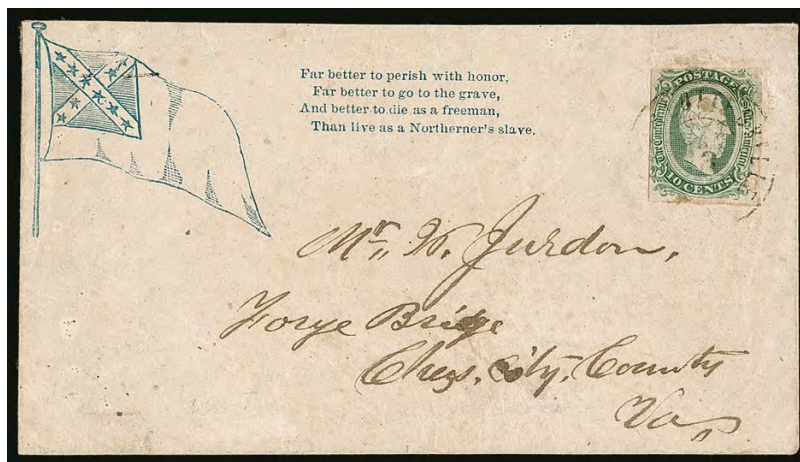 Far better to perish with honor,
Far better to go to the grave,
And better to die as a freeman,
Than live as a Northerner's slave.
POSTAGE
The Confederate States of America
10 CENTS
Mr. W. Jurdon,
Forge Bridge
Chas. City. County
Va